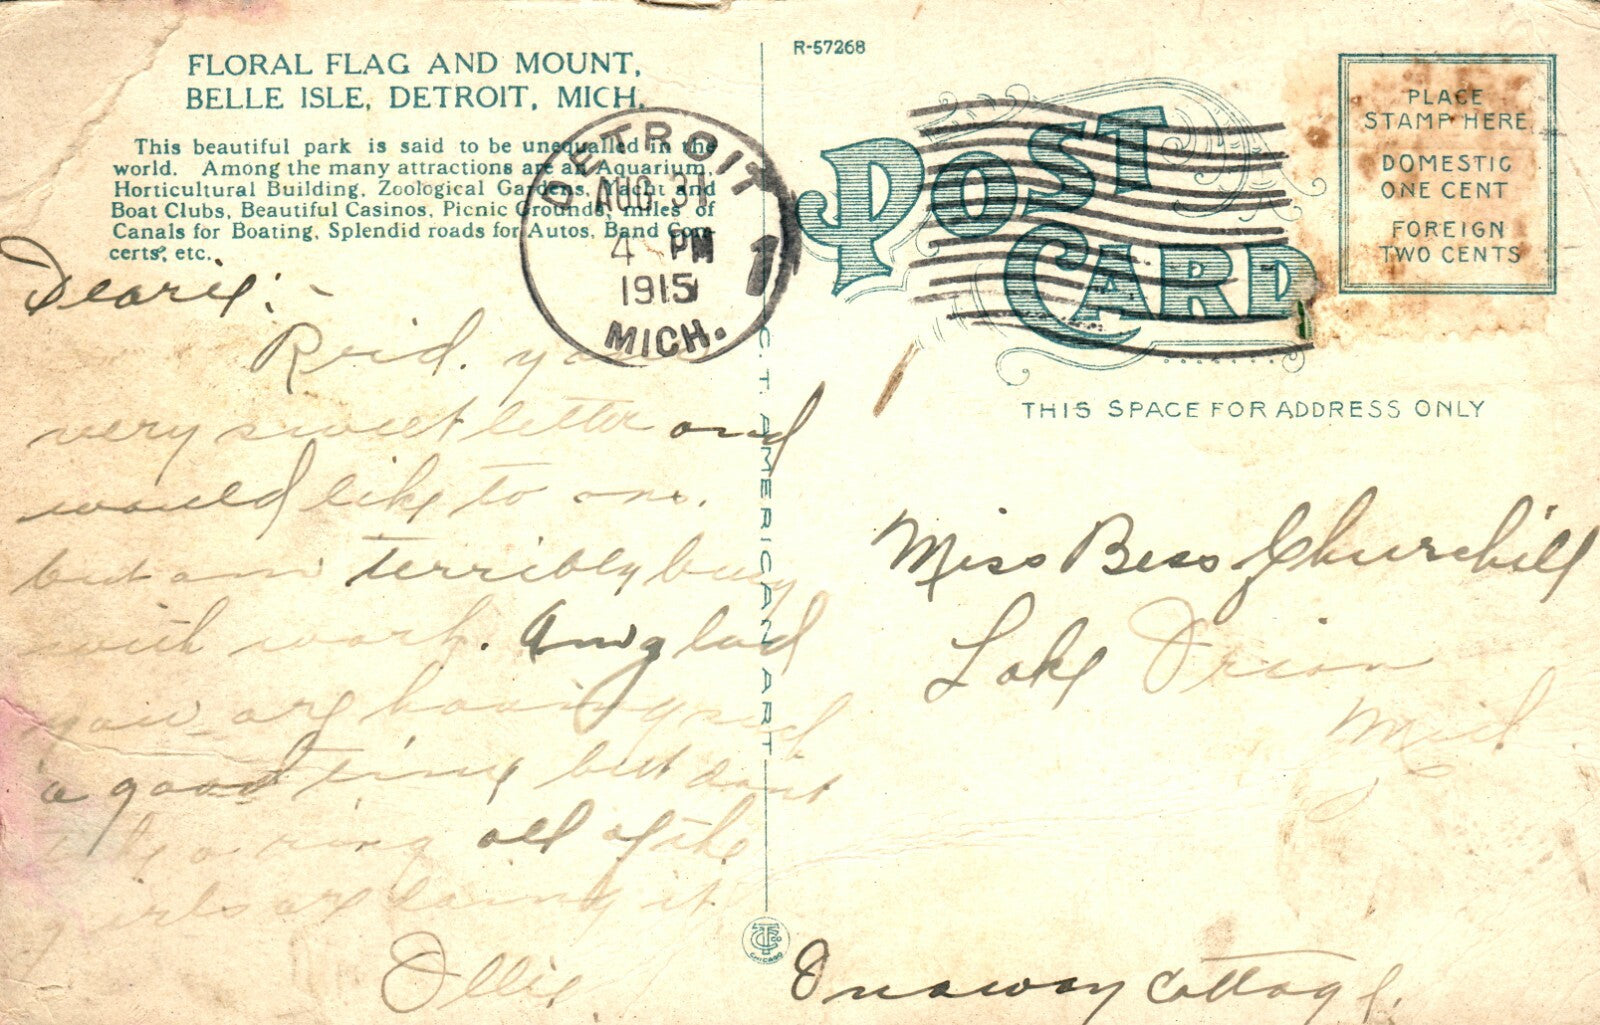 FLORAL FLAG AND MOUNT,
BELLE ISLE, DETROIT, MICH.
This beautiful park is said to be unequalled in the
world. Among the many attractions are an Aquarium,
Horticultural Building, Zoological Gardens, Yacht and
Boat Clubs, Beautiful Casinos, Picnic Grounds, miles of
Canals for Boating, Splendid roads for Autos, Band Con-
certs, etc.
Dearie:-
Recd. your
very sweet letter and
would like to ans.
but am terribly busy
with work. Am glad
you are having such
a good time but don't
take a ring all of the
girls are doing it
Ollie
DETROIT
AUG 31
4 PM
1915
MICH.
1
C. T. AMERICAN ART
CHICAGO
R-57268
POST
CARD
PLACE
STAMP HERE
DOMESTIC
ONE CENT
FOREIGN
TWO CENTS
THIS SPACE FOR ADDRESS ONLY
Miss Bess Churchill
Lake Orion
Mich.
Onaway Cottage.